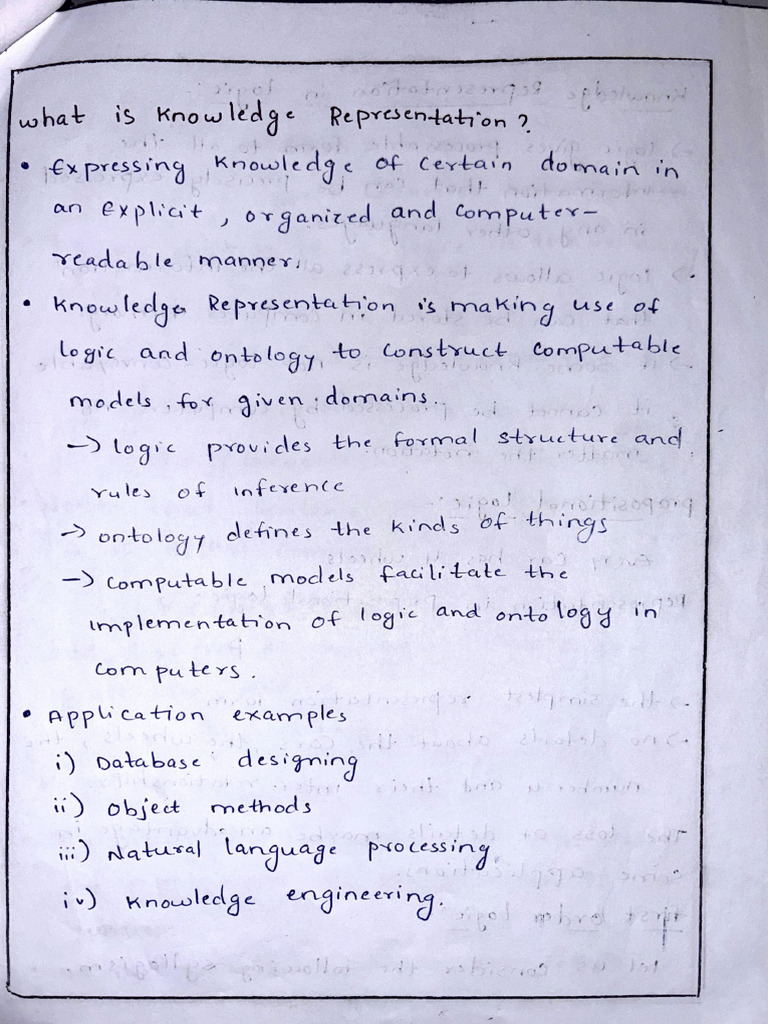 What is Knowledge Representation?
• Expressing Knowledge of certain domain in
an Explicit, organized and computer-
readable manner.
• Knowledge Representation is making use of
logic and ontology to construct computable
models for given domains.
→ logic provides the formal structure and
rules of inference
→ ontology defines the kinds of things
→ computable models facilitate the
implementation of logic and ontology in
computers.
• Application examples
i) Database designing
ii) Object methods
iii) Natural language processing
iv) Knowledge engineering.